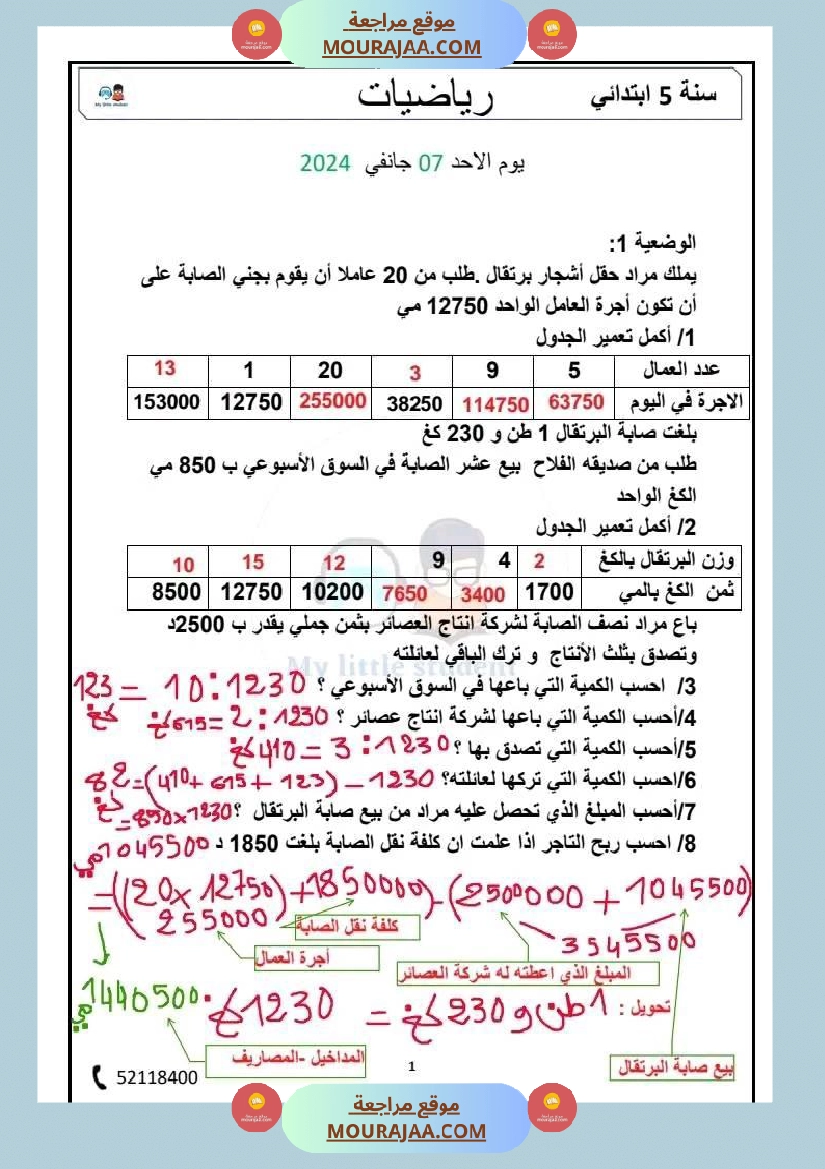 موقع مراجعة
MOURAJAA.COM
سنة 5 ابتدائي رياضيات
My little student
يوم الاحد 07 جانفي 2024
الوضعية 1:
يملك مراد حقل أشجار برتقال .طلب من 20 عاملا أن يقوم بجني الصابة على
أن تكون أجرة العامل الواحد 12750 مي
1/ أكمل تعمير الجدول
عدد العمال 5 9 3 20 1 13
الاجرة في اليوم 63750 114750 38250 255000 12750 153000
بلغت صابة البرتقال 1 طن و 230 كغ
طلب من صديقه الفلاح بيع عشر الصابة في السوق الأسبوعي ب 850 مي
الكغ الواحد
2/ أكمل تعمير الجدول
وزن البرتقال بالكغ 2 4 9 12 15 10
ثمن الكغ بالمي 1700 3400 7650 10200 12750 8500
باع مراد نصف الصابة لشركة انتاج العصائر بثمن جملي يقدر ب 2500د
وتصدق بثلث الأنتاج و ترك الباقي لعائلته
My little student
3/ احسب الكمية التي باعها في السوق الأسبوعي ؟ 1230 : 10 = 123 كغ
4/أحسب الكمية التي باعها لشركة انتاج عصائر ؟ 1230 : 2 = 615 كغ
5/أحسب الكمية التي تصدق بها ؟ 1230 : 3 = 410 كغ
6/احسب الكمية التي تركها لعائلته؟ 1230 – (123 + 615 + 410) = 82 كغ
7/أحسب المبلغ الذي تحصل عليه مراد من بيع صابة البرتقال ؟ 1230×850=
8/ احسب ربح التاجر اذا علمت ان كلفة نقل الصابة بلغت 1850 د 1045500 مي
(2500000 + 1045500) - ((20 × 12750) + 1850000) =
255000
3545500
كلفة نقل الصابة
أجرة العمال
المبلغ الذي اعطته له شركة العصائر
1440500 مي
تحويل : 1 طن و 230 كغ = 1230 كغ
المداخيل -المصاريف
بيع صابة البرتقال
1
52118400
موقع مراجعة
MOURAJAA.COM